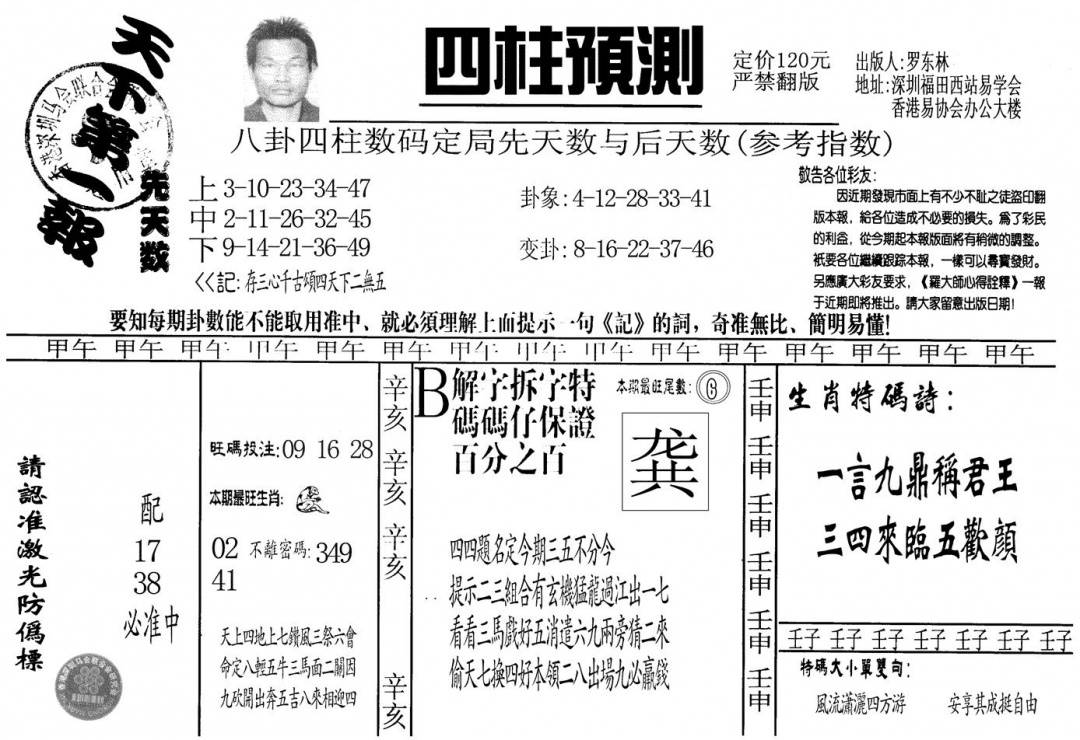 天下第一報
先天数
四柱預測
定价120元
严禁翻版
出版人:罗东林
地址:深圳福田西站易学会
香港易协会办公大楼
八卦四柱数码定局先天数与后天数(参考指数)
上 3-10-23-34-47
中 2-11-26-32-45
下 9-14-21-36-49
卦象:4-12-28-33-41
变卦:8-16-22-37-46
<<記:存三心千古頌四天下二無五
敬告各位彩友:
因近期發現市面上有不少不耻之徒盜印翻
版本報,給各位造成不必要的損失。爲了彩民
的利益,從今期起本報版面將有稍微的調整。
祇要各位繼續跟踪本報,一樣可以尋寶發財。
另應廣大彩友要求,《羅大師心得詮釋》一報
于近期即將推出。請大家留意出版日期!
要知每期卦數能不能取用准中、就必須理解上面提示一句《記》的詞,奇准無比、簡明易懂!
甲午 甲午 甲午 甲午 甲午 甲午 甲午 甲午 甲午 甲午 甲午 甲午 甲午 甲午 甲午
請認准激光防僞標
配
17
38
必准中
旺碼投注:09 16 28
本期最旺生肖:
02 不離密碼:349
41
天上四地上七鑽風三祭六會
命定八輕五牛三馬面二關因
九砍開出奔五吉八來相迎四
辛亥 辛亥 辛亥 辛亥
B解字拆字特
碼碼仔保證
百分之百
本期最旺尾數:6
龚
四四題名定今期三五不分今
提示二三組合有玄機猛龍過江出一七
看看三馬戲好五消遣六九兩旁猜二來
偷天七換四好本領二八出場九必贏錢
壬申 壬申 壬申 壬申 壬申 壬申
生肖特碼詩:
一言九鼎稱君王
三四來臨五歡顔
壬子 壬子 壬子 壬子 壬子 壬子 壬子
特碼大小單雙句:
風流瀟灑四方游 安享其成挺自由